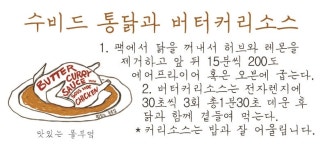 수비드 통닭과 버터커리소스
1. 팩에서 닭을 꺼내서 허브와 레몬을
제거하고 앞 뒤 15분씩 200도
에어프라이어 혹은 오븐에 굽는다.
2. 버터커리소스는 전자렌지에
30초씩 3회 총1분30초 데운 후
닭과 함께 곁들여 먹는다.
* 커리소스는 밥과 잘 어울립니다.
BUTTER CURRY
SAUCE
CHICKEN
맛있는 물푸멍